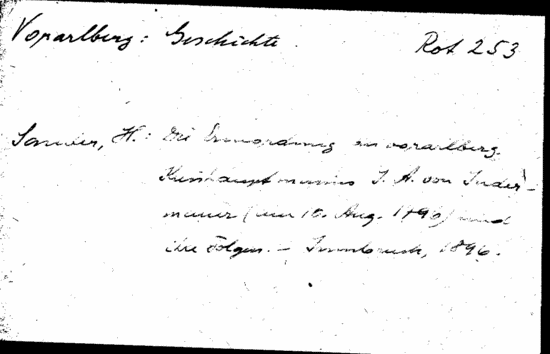 Vorarlberg: Geschichte Rot 253
Sander, H.: Die Ermordung des vorarlberg.
Kreishauptmanns I. A. von Inder-
mauer (am 10. Aug. 1796) und
ihre Folgen. – Innsbruck, 1896.